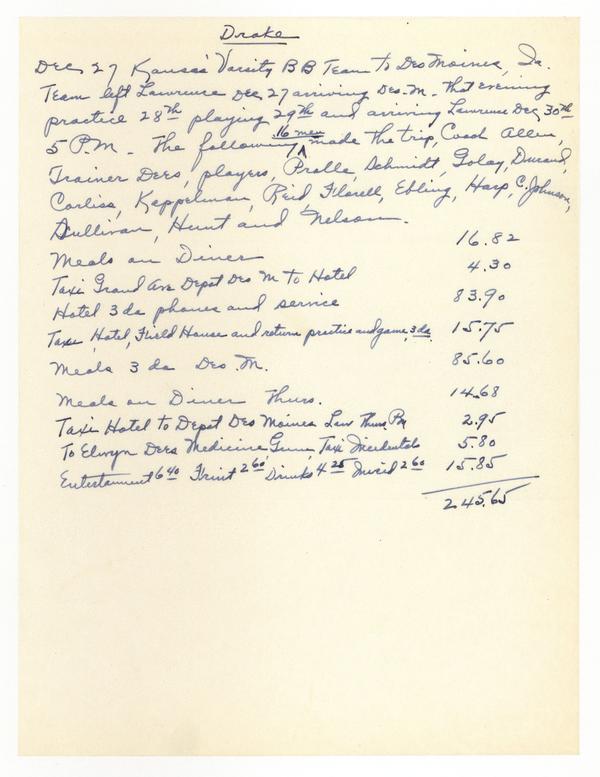 Drake
Dec 27 Kansas Varsity BB Team to Des Moines, Ia.
Team left Lawrence Dec 27 arriving Des. M. that evening
practice 28th playing 29th and arriving Lawrence Dec 30th
5 P.M. The following 16 men made the trip, Coach Allen,
Trainer Dees, players, Pralle, Schmidt, Golay, Durand,
Corlis, Kappelman, Reid, Florell, Ebling, Harp, C. Johnson,
Sullivan, Hunt and Nelson.
Meals on Diner 16.82
Taxi Grand Ave Depot Des M to Hotel 4.30
Hotel 3 da phones and service 83.90
Taxi, Hotel, Field House and return practice and game, 3 da. 15.75
Meals 3 da Des. M. 85.60
Meals on Diner Thurs. 14.68
Taxi Hotel to Depot Des Moines Thurs. PM 2.95
To Elwyn Dees Medicine, Gum, Taxi Incidentals 5.80
Entertainment 6 40 Fruit 2 60 Drinks 4 25 2 60 15.85
245.65